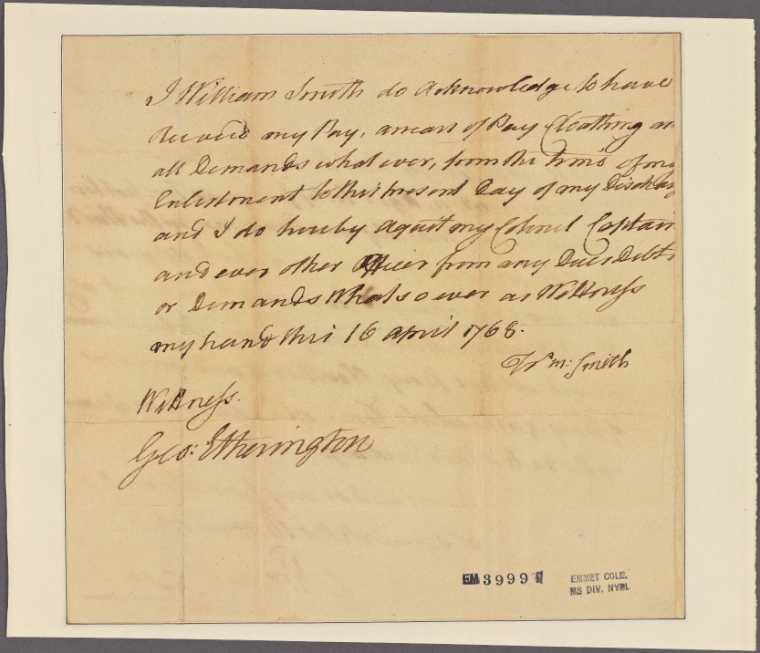 I William Smith do Acknowledge to have
Received my Pay, arears of Pay Cloathing an
all Demands what ever, from the time of my
Enlestment to this present Day of my Discharg
and I do hereby aquit my Colonel Captain
and ever other Officer from any Dues Debts
or Demands Whatsoever as Wittness
my hand this 16 April 1768.
Wm: Smith
Wittness.
Geo: Etherington
EM 3999
EMMET COLL.
MS DIV. NYPL